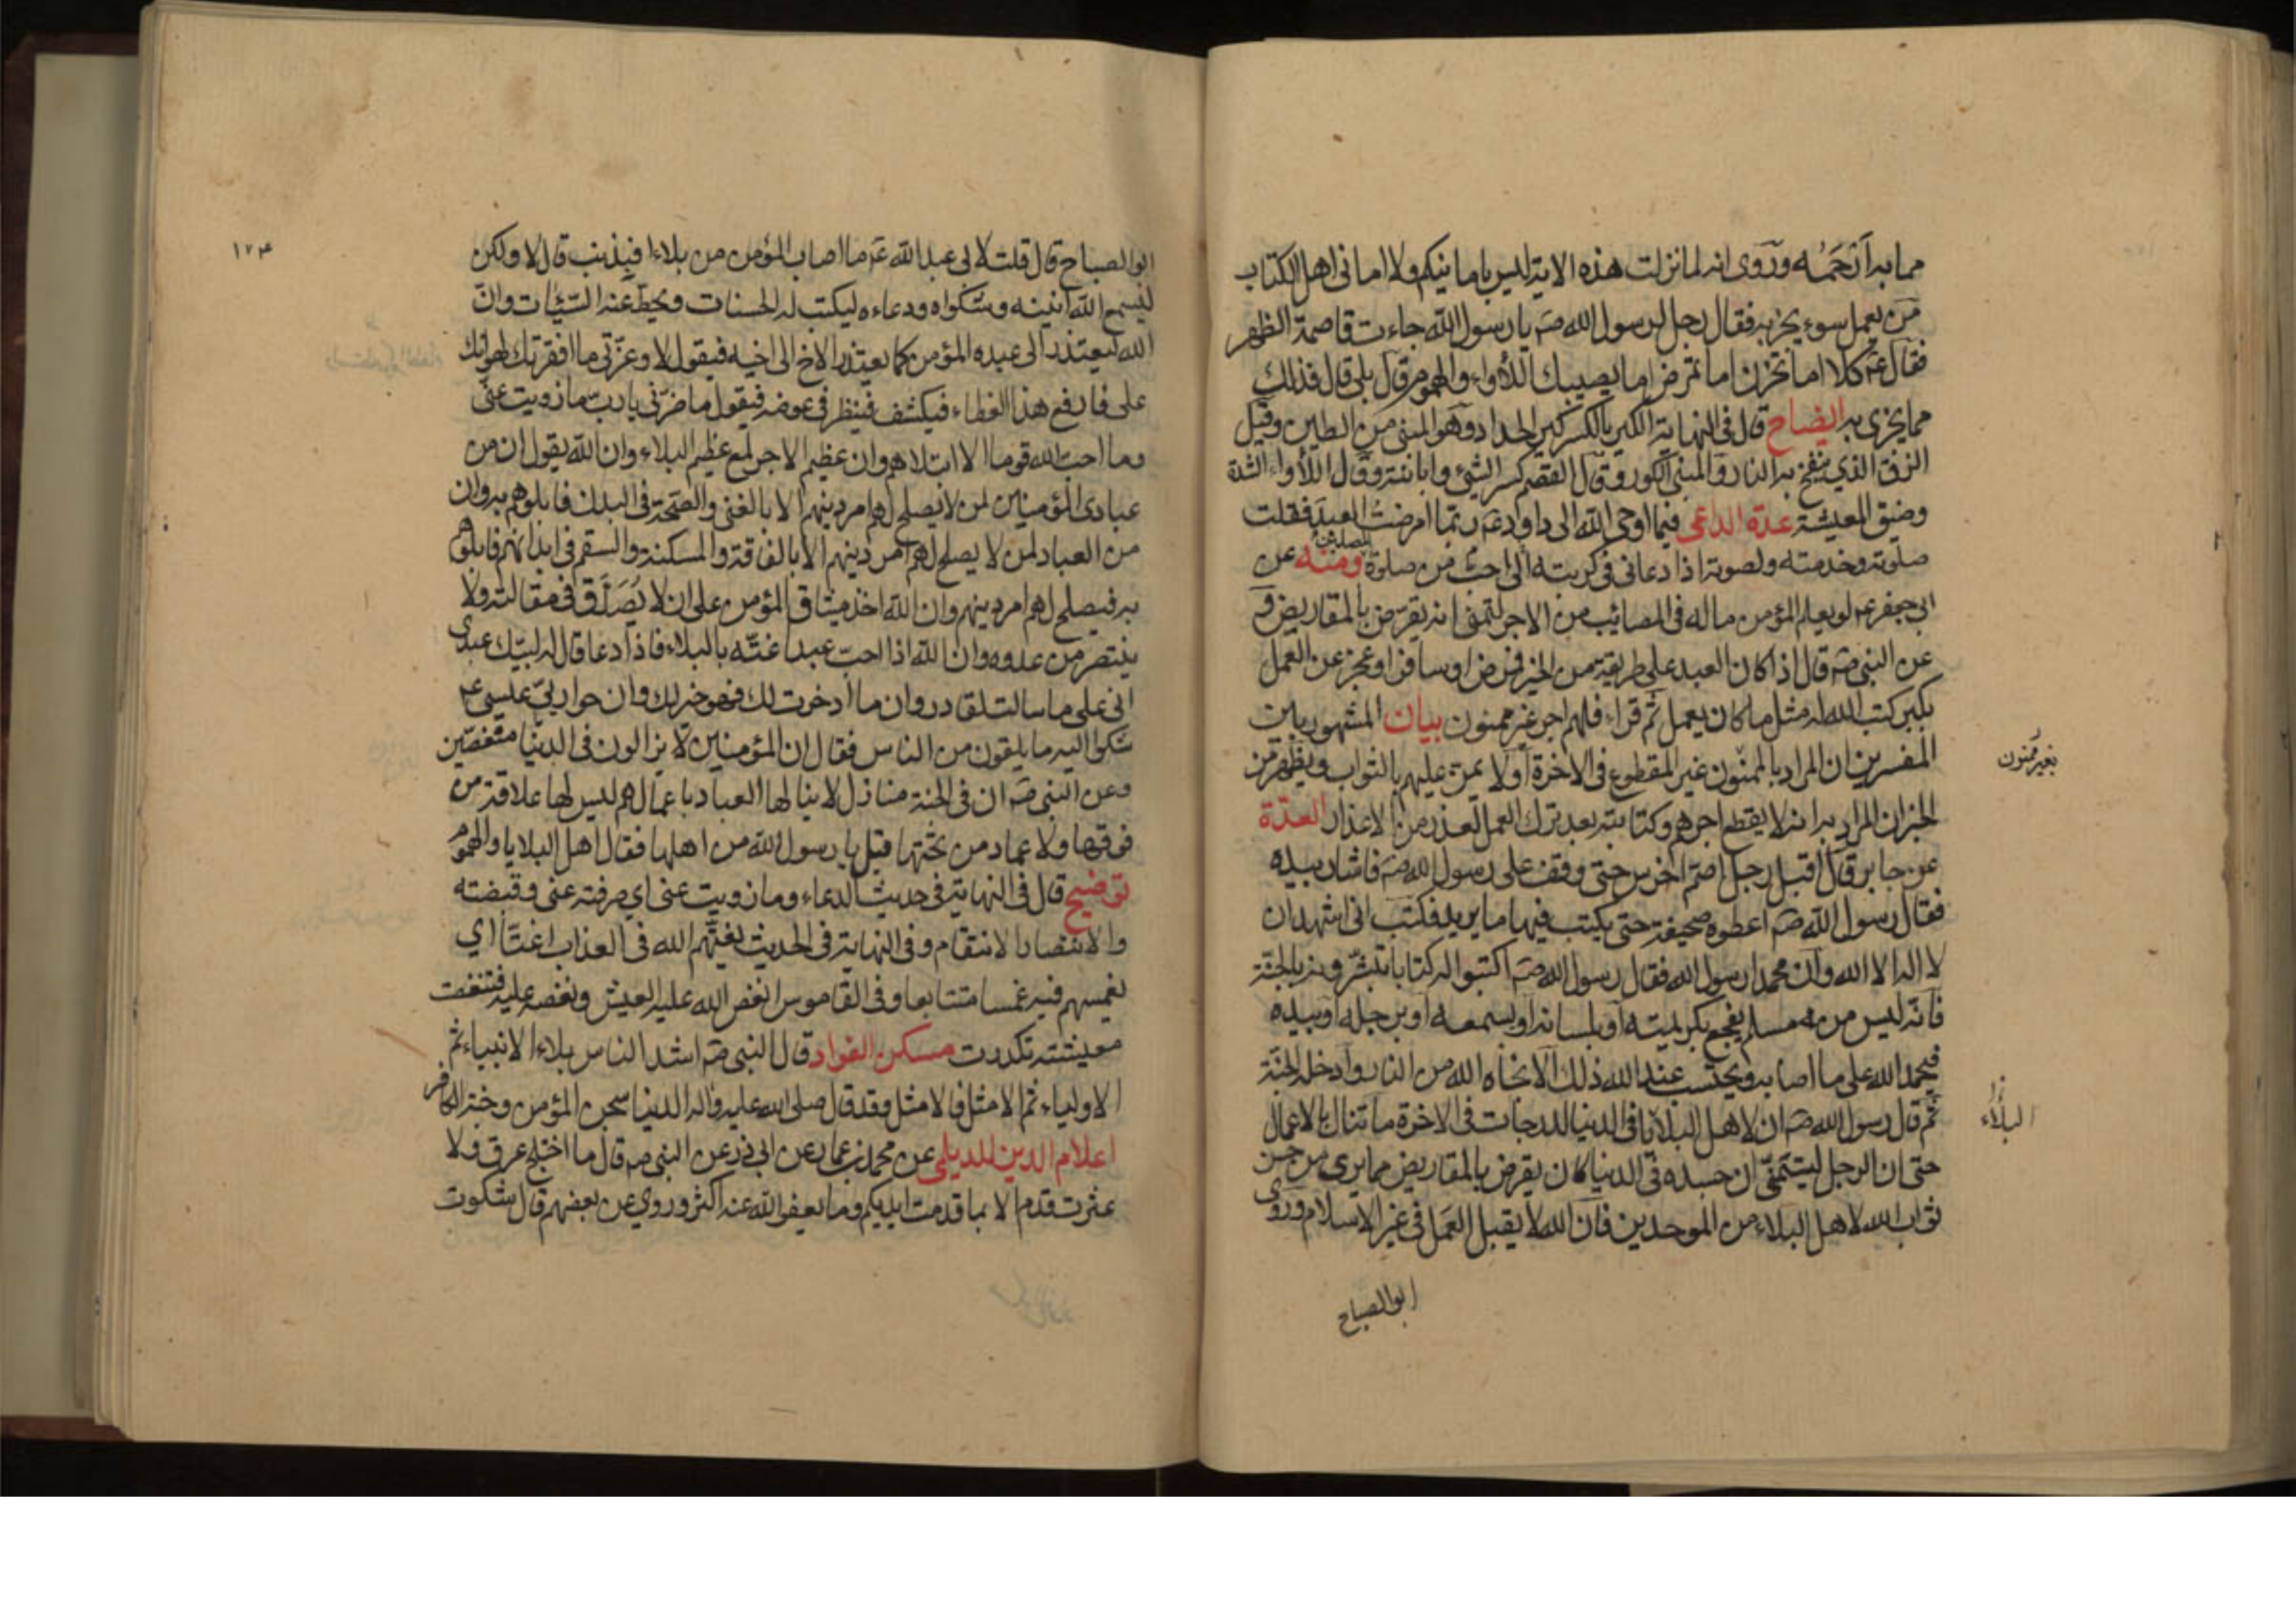 مما به أرحمه وروى انه لما نزلت هذه الاية ليس بامانيكم ولا امانى اهل الكتاب
من يعمل سوء يجز به فقال رجل لرسول الله صَ يا رسول الله جاءت قاصمة الظهر
فقال عَ كلا اما تحزن اما تمرض اما يصيبك اللأواء والهموم قال بلى قال فذلك
مما يجزى به ايضاح قال فى النهاية الكير بالكسر كير الحداد وهو المبنى من الطين وقيل
الزق الذي ينفخ به النار والمبنى الكور وقال القصم كسر الشئ وابانته وقال اللأواء الشدة
وضيق المعيشة عدة الداعى فيما اوحى الله الى داود عَ ربما امرضت العبد فقلت
صلوته وخدمته ولصوته اذا دعانى فى كربته الى احب من صلوة المصلين ومنه عن
ابى جعفر ع لو يعلم المؤمن ما له فى المصائب من الاجر لتمنى انه يقرض بالمقاريض و
عن النبى صَ قال اذا كان العبد على طريقة من الخير فمرض او سافر او عجز عن العمل
بكبر كتب الله له مثل ما كان يعمل ثم قراء فلهم اجر غير ممنون بيان المشهور بين
المفسرين ان المراد بالممنون غير المقطوع فى الاخرة او لا يمن عليهم بالثواب ويظهر من
بغير ممنون
الخبر ان المراد به انه لا يقطع اجرهم وكتابته بعد ترك العمل لعذر من الاعذار العدّة
عن جابر قال اقبل رجل اصم اخرس حتى وقف على رسول الله صَ فاشار بيده
فقال رسول الله صَ اعطوه صحيفة حتى يكتب فيها ما يريد فكتب انى اشهد ان
لا اله الا الله وان محمدا رسول الله فقال رسول الله صَ اكتبوا له كتابا تبشرونه بالجنة
فانه ليس من مسلم يفجع بكريمته او بلسانه او بسمعه او برجله او بيده
فيحمد الله على ما اصابه ويحتسب عند الله ذلك الا نجاه الله من النار وادخله الجنة
ثم قال رسول الله صَ ان لاهل البلايا فى الدنيا لدرجات فى الاخرة ما تنال بالاعمال
البلاء
حتى ان الرجل ليتمنى ان جسده فى الدنيا كان يقرض بالمقاريض مما يرى من حسن
ثواب الله لاهل البلاء من الموحدين فان الله لا يقبل العمل فى غير الاسلام وروى
ابو الصباح
١٧٤
ابو الصباح قال قلت لابى عبد الله عَ ما اصاب المؤمن من بلاء افبذنب قال لا ولكن
ليسمع الله انينه وشكواه ودعاءه ليكتب له الحسنات ويحط عنه السيئات وان
الله ليعتذر الى عبده المؤمن كما يعتذر الاخ الى اخيه فيقول لا وعزتى ما افقرتك لهوانك
على فارفع هذا الغطاء فيكشف فينظر فى عوضه فيقول ما ضرنى يا رب ما زويت عنى
وما احب الله قوما الا ابتلاهم وان عظيم الاجر لمع عظيم البلاء وان الله يقول ان من
عبادى المؤمنين لمن لا يصلح لهم امر دينهم الا بالغنى والصحة فى البدن فابلوهم به وان
من العباد لمن لا يصلح لهم امر دينهم الا بالفاقة والمسكنة والسقم فى ابدانهم فابلوهم
به فيصلح لهم امر دينهم وان الله اخذ ميثاق المؤمن على ان لا يُصَدَّق فى مقالته ولا
ينتصر من عدوه وان الله اذا احب عبدا غته بالبلاء فاذا دعا قال له لبيك عبدى
انى على ما سالت لقادر وان ما ادخرت لك فهو خير لك وان حواريى عيسى ع
شكوا اليه ما يلقون من الناس فقال ان المؤمنين لا يزالون فى الدنيا منغصين
وعن النبى صَ ان فى الجنة منازل لا ينالها العباد باعمالهم ليس لها علاقة من
فوقها ولا عماد من تحتها قيل يا رسول الله من اهلها فقال اهل البلايا والهموم
توضيح قال فى النهاية فى حديث الدعاء وما زويت عنى اي صرفته عنى وقبضته
والانتصار الانتقام وفى النهاية فى الحديث يغتهم الله فى العذاب اغتا اي
يغمسهم فيه غمسا متتابعا وفى القاموس انغص الله عليه العيش ونغصه عليه فتنغصت
معيشته تكدرت مسكن الفواد قال النبى صَ اشد الناس بلاء الانبياء ثم
الاولياء ثم الامثل فالامثل وقد قال صلى الله عليه واله الدنيا سجن المؤمن وجنة الكافر
اعلام الدين للديلمى عن محمد بن عمار عن ابى ذر عن النبى صَ قال ما اختلج عرق ولا
عثرت قدم الا بما قدمت ايديكم وما يعفو الله عنه اكثر وروي عن بعضهم قال شكوت